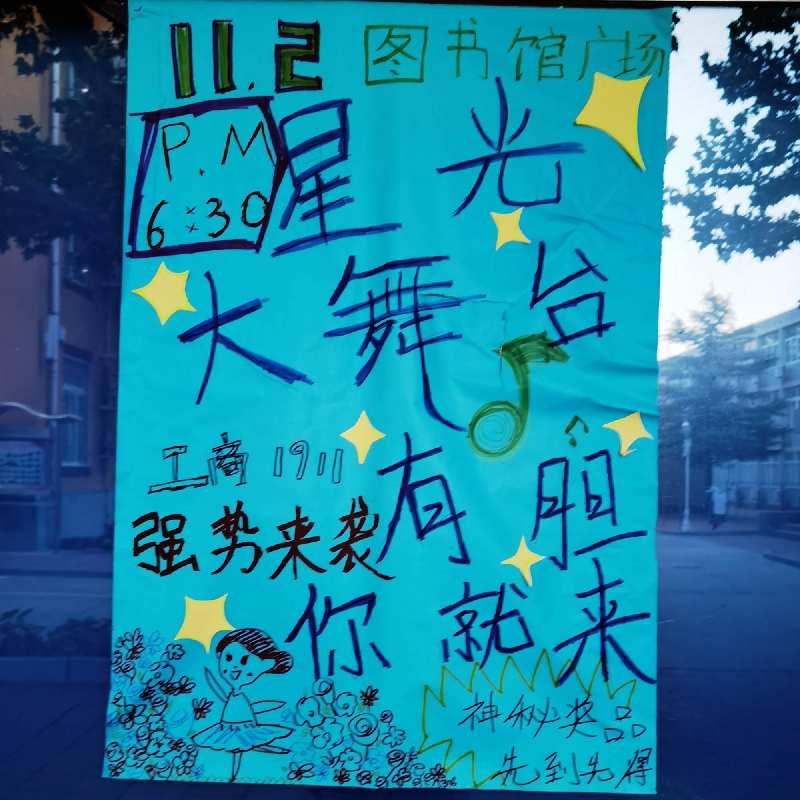 11.2 图书馆广场
P.M
6:30
星光
大舞台
工商1911
强势来袭
有胆
你就来
神秘奖品
先到先得